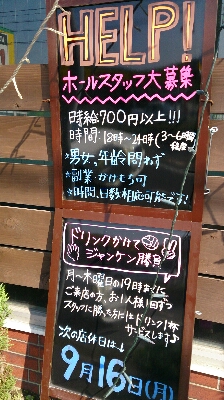 HELP!
ホールスタッフ大募集
時給700円以上!!!
時間:18時～24時(3～6時間程度)
*男女、年齢問わず
*副業・かけもち可
*時間、日数相応可能です!
ドリンクかけて
ジャンケン勝負
月～木曜日の19時までに
ご来店の方、お1人様1回ずつ
スタッフに勝った方にはドリンク1杯
サービスします♪
次の店休日は↓
9月16日(月)